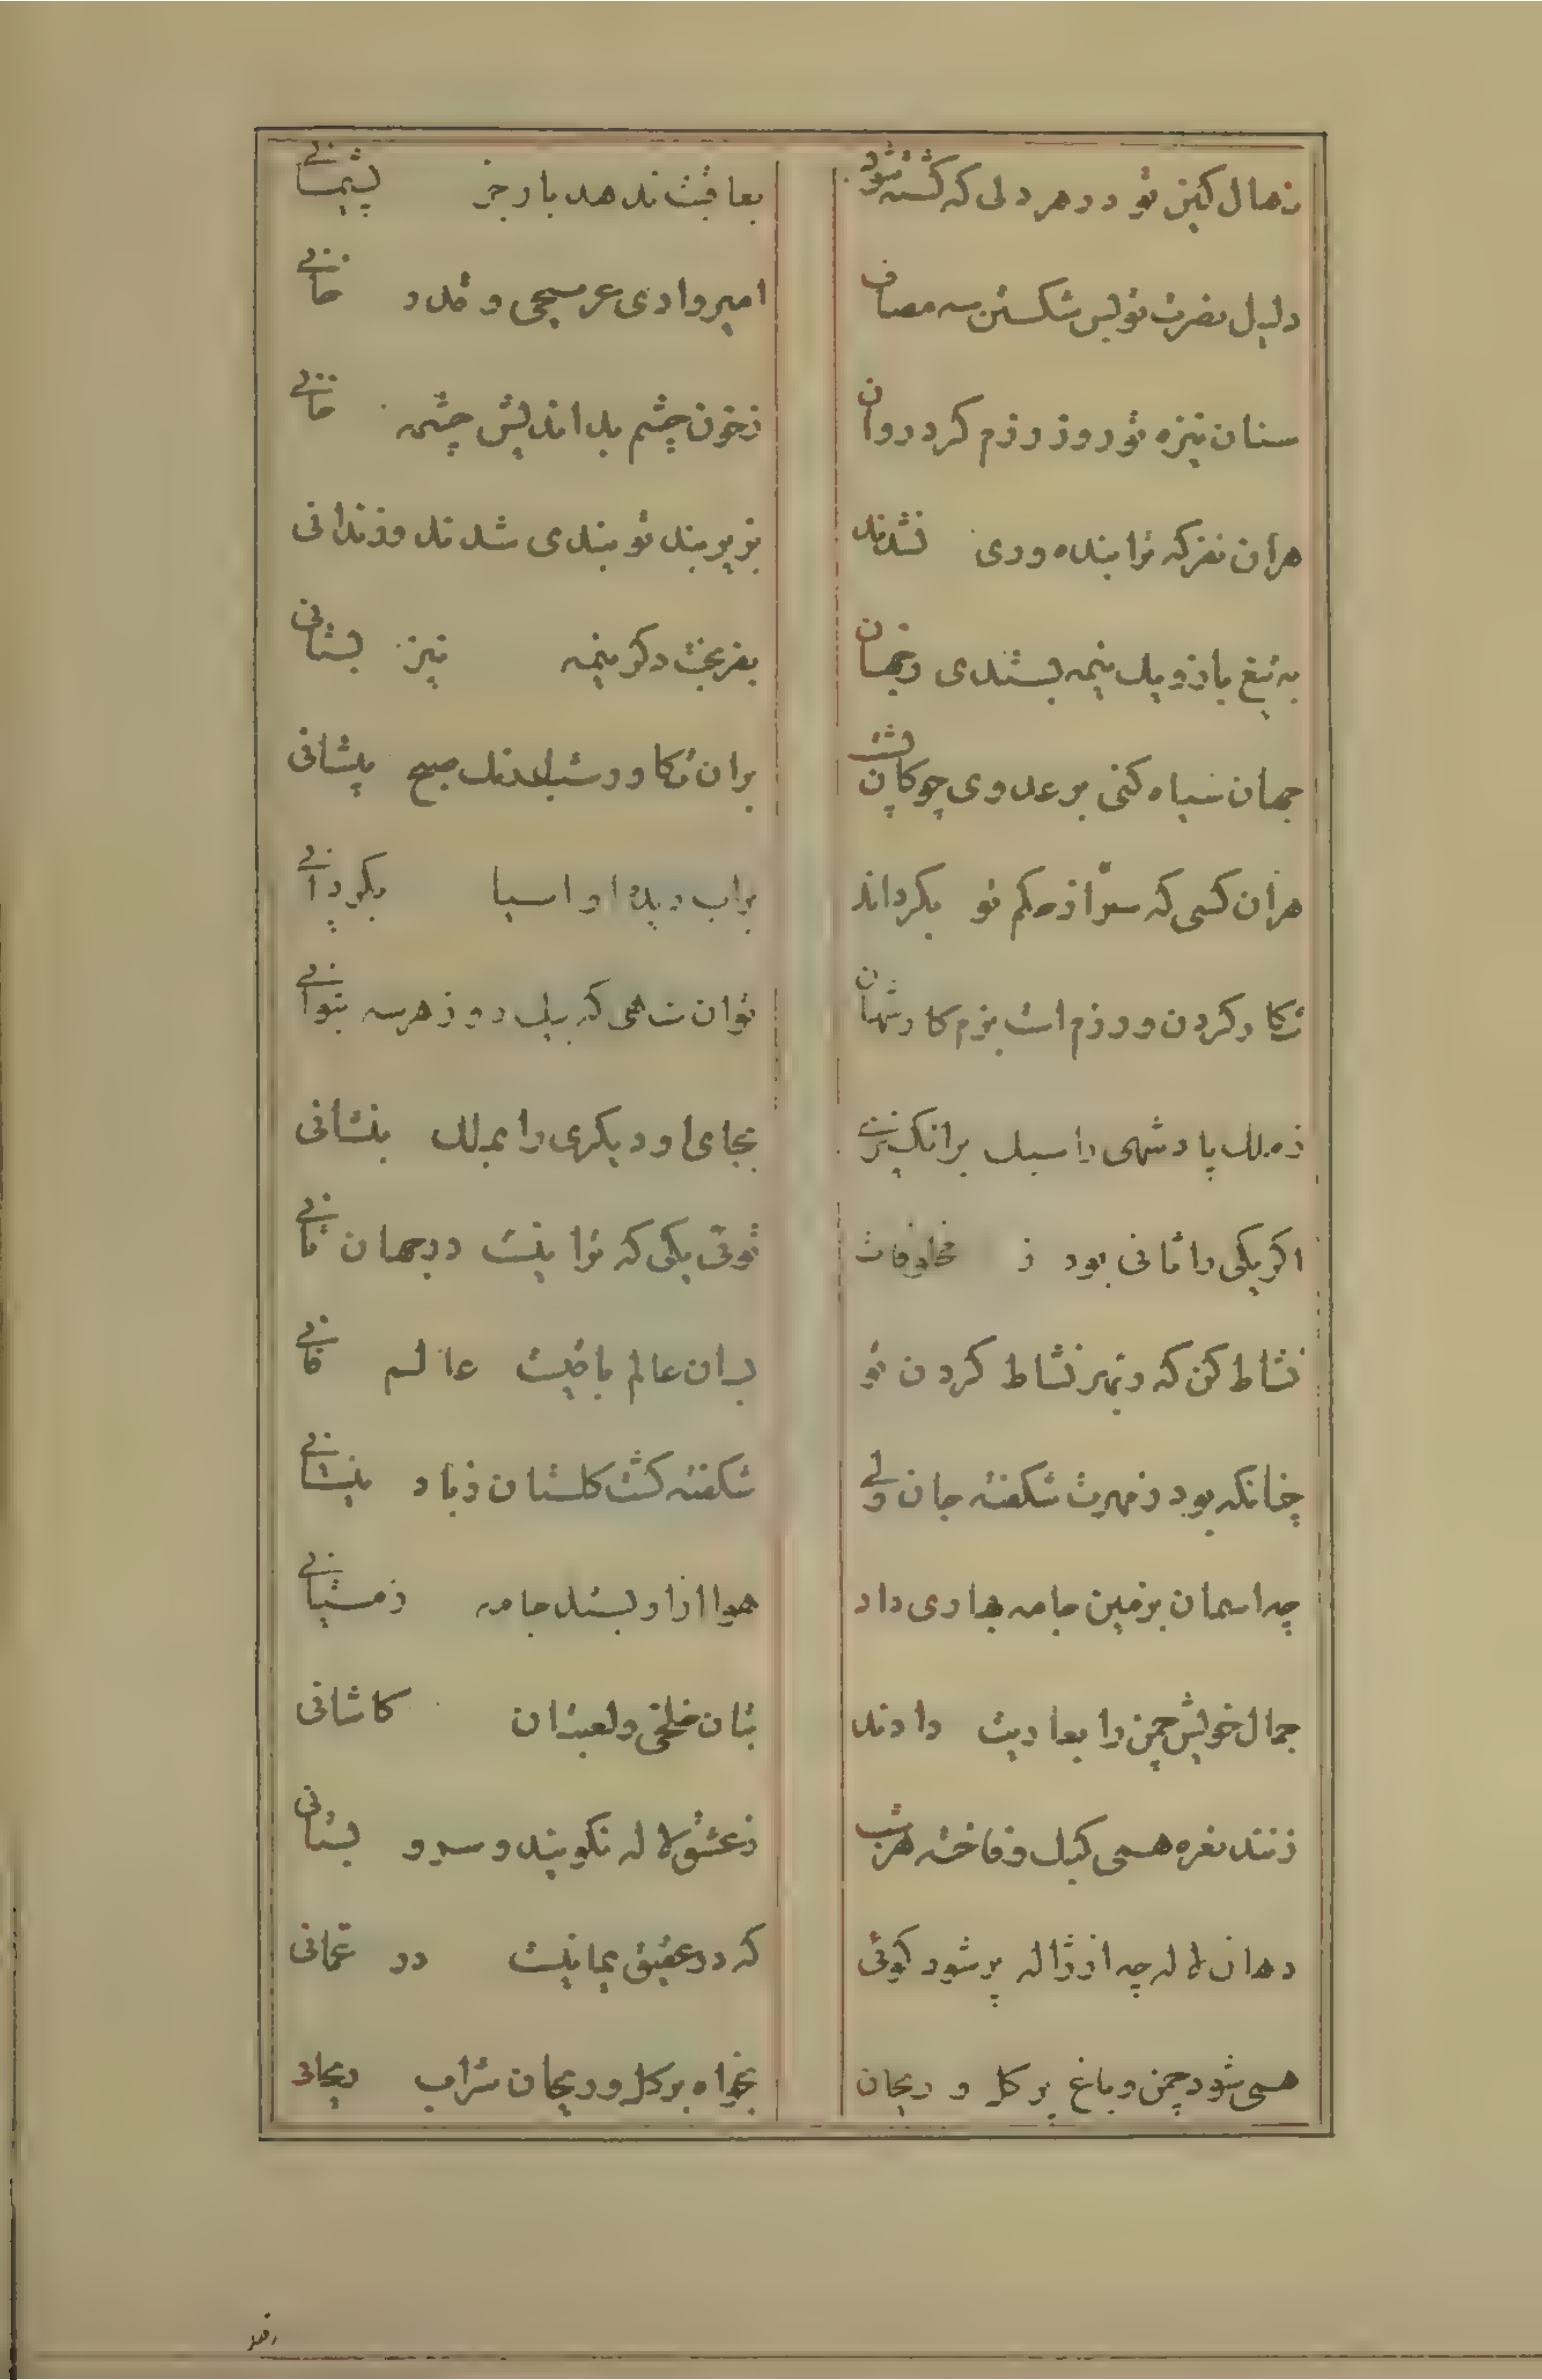 نهال کین تو در هر دلی که کشته شود
بعاقبت ندهد بار جز پشیمانی
دلیل نصرت تو بس شکستن سه مصاف
امیر وادی عر مسیحی و قلدر خانی
سنان نیزه تو روز رزم کرد روان
ز خون چشم بداندیش چشمه خانی
هران نفر که ترا بنده وری نشدند
بزیر بند تو بندی شدند و زندانی
به تیغ یازو یک نیمه بستدی ز جهان
بفر بخت دگر نیمه نیز بستانی
جهان سیاه کنی بر عدوی چو کان
بران تکاور شبدیز صبح پیشانی
هران کسی که سر از حکم تو بگرداند
براب دیده او اسیا بگردانی
شکار کردن و رزم است بزم کار شهان
توان شهی که بیک روز هر سه بتوانی
ز ملک پادشهی را سبک برانگیزی
بجای او دیگری را بملک بنشانی
اکر یکی را ثانی بود ز مخلوقات
توئی یکی که ترا نیست در جهان ثانی
نشاط کن که ز بهر نشاط کردن تو
بدان عالم باقیست عالم فانی
چنانکه بود ز مهرت شکفته جان ولی
شکفته کشت کلستان ز باد نیسانی
چه اسمان بزمین جامه بهاری داد
هوا ازاو بستد جامه زمستانی
جمال خویش چمن را بعاریت دادند
بتان خلخی و لعبتان کاشانی
زنند نعره همی کبک و فاخته هر شب
ز عشق لاله نکویند و سرو بستانی
دهان لاله چه از ژاله پر شود کوئی
که در عقیق یمانیست در عمانی
همی شود چمن و باغ پر کل و ریحان
بخواه بر کل و ریحان شراب ریحانی